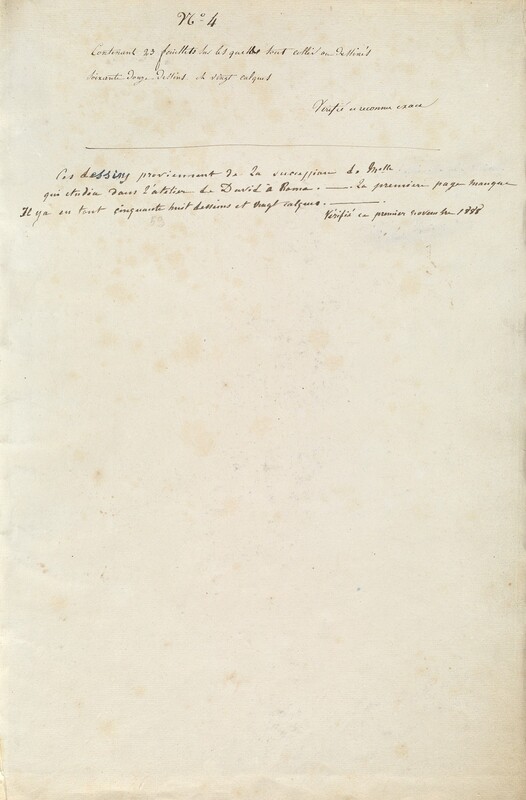 N.º 4
Contenant 23 feuillets sur lesquelles sont collés ou dessinés
soixante douze dessins et vingt calques
Vérifié et reconnu exact
Ces dessins proviennent de la succession de Melle
qui étudia dans l'atelier de David à Rome. — La première page manque
Il y a en tout cinquante huit dessins et vingt calques. —
59
Vérifié ce premier novembre 1888